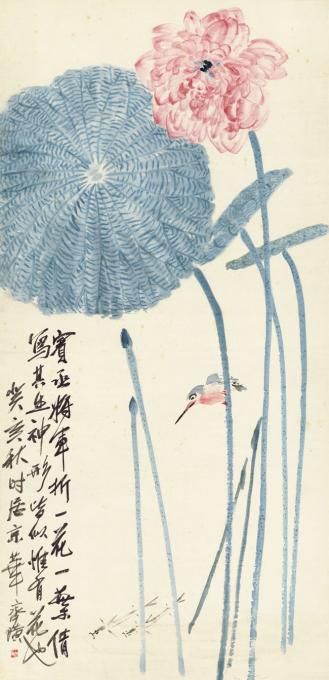 賓丞將軍折一花一倩
寫其神形皆似惟有花也
癸亥秋時居京華齊璜